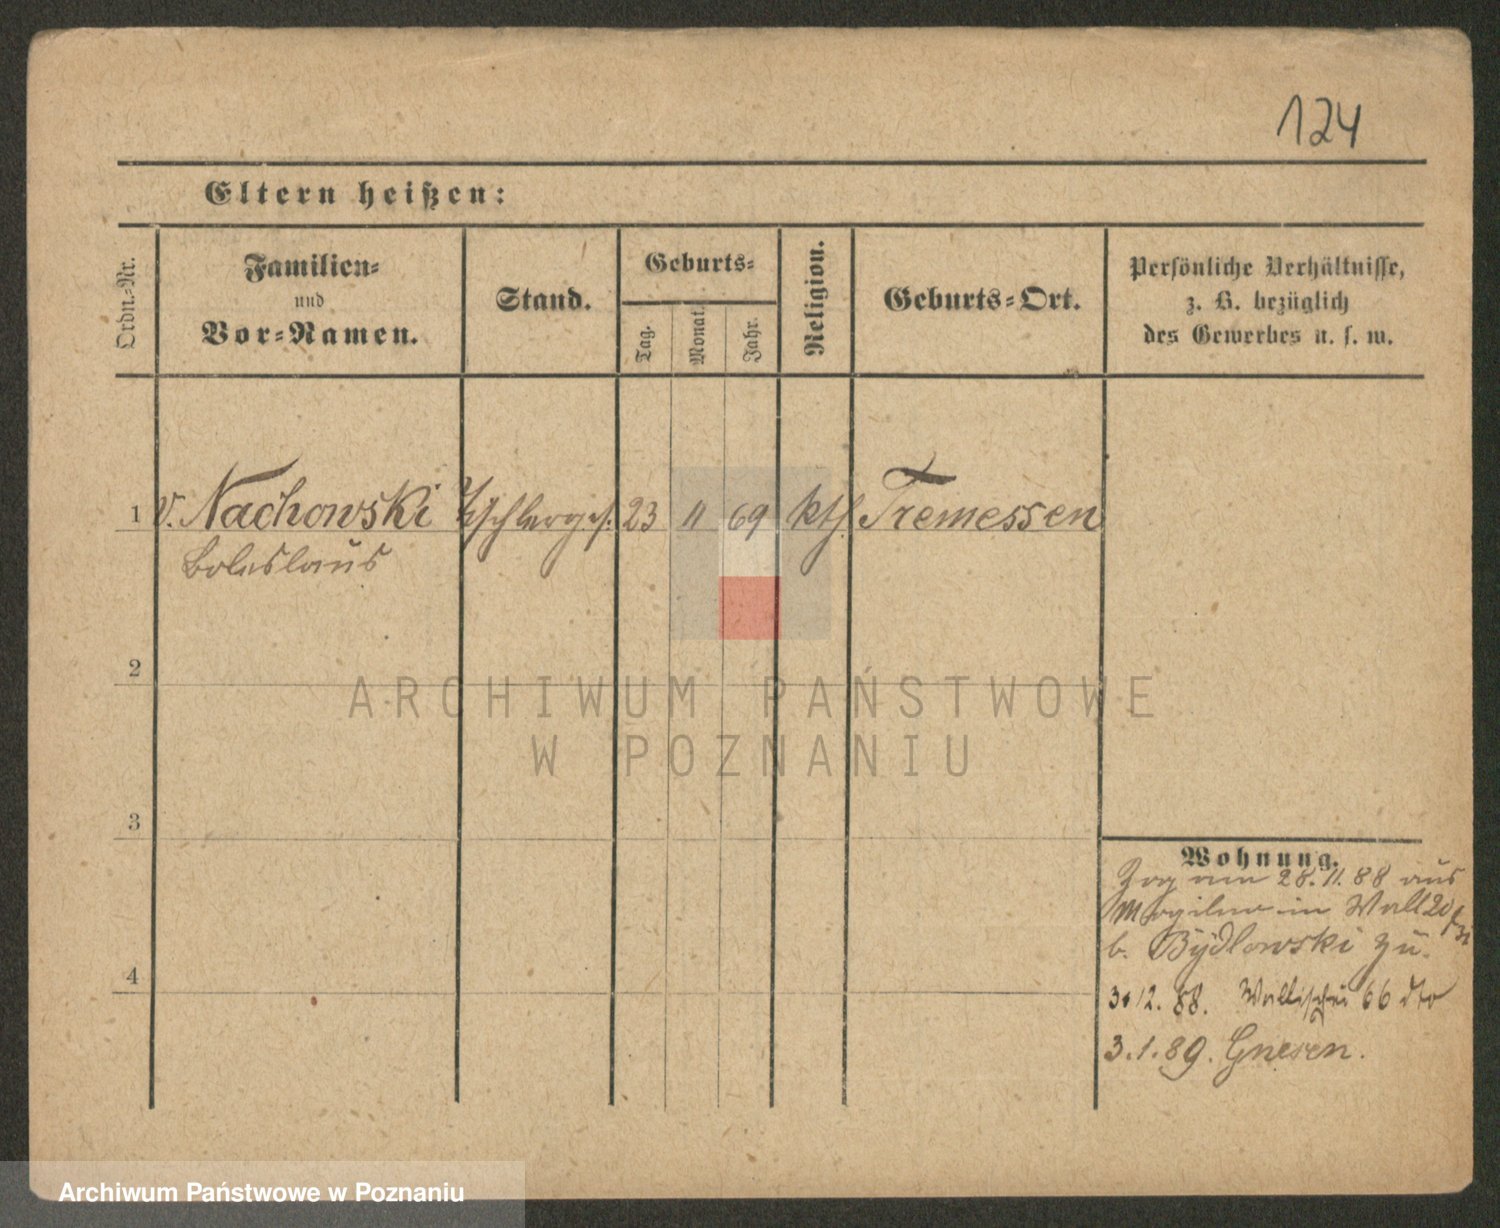 124
Eltern heißen:
Ordn.-Nr.
Familien-
und
Vor-Namen.
Stand.
Geburts-
Tag.
Monat.
Jahr.
Religion.
Geburts-Ort.
Persönliche Verhältnisse,
z. B. bezüglich
des Gewerbes u. s. w.
1 v. Nachowski Tischlerges. 23 11 69 kth. Tremessen
Boleslaus
2
ARCHIWUM PAŃSTWOWE
W POZNANIU
3
Wohnung.
Zog am 28.11.88 aus
Mogilno in Wall 20
b. Bydlowski zu.
12. 88. Wallischei 66 dto
4
3.1.89. Gnesen.
Archiwum Państwowe w Poznaniu